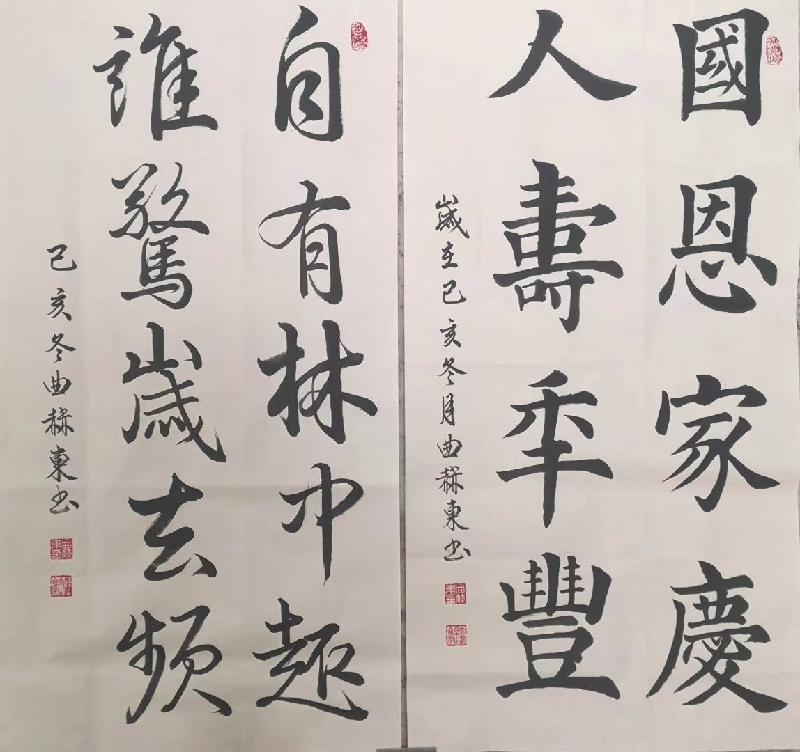 國恩家慶
人壽年豐
歲在己亥冬月曲赫東书
自有林中趣
誰驚歲去頻
己亥冬曲赫東书